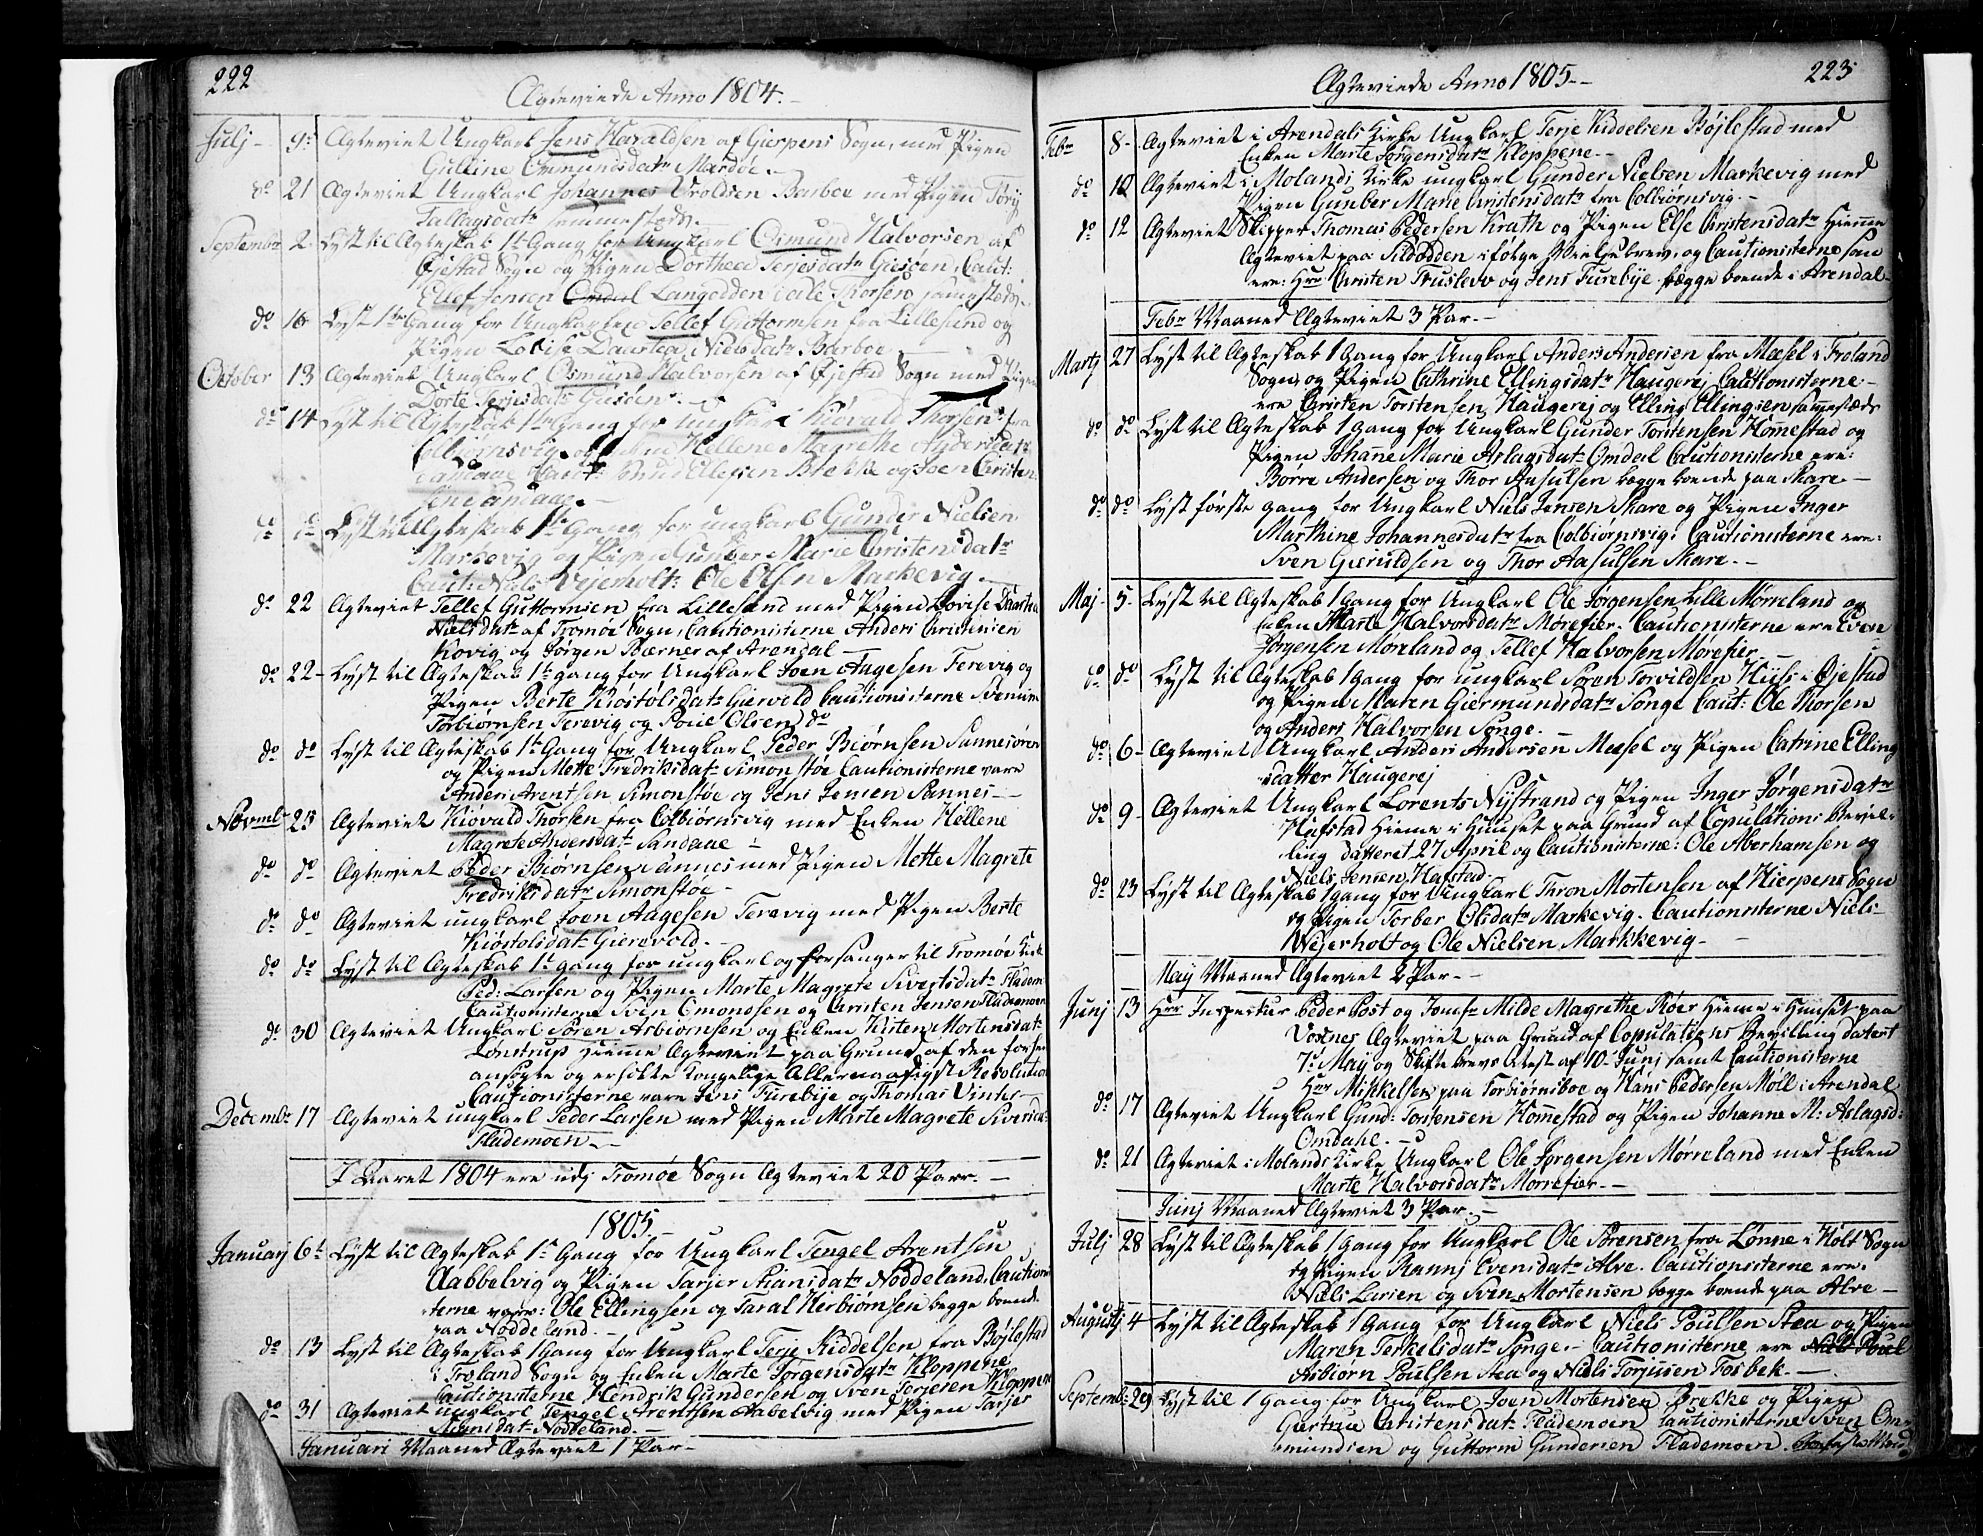 222
Ægteviede Anno 1804.
Julj 9 Ægteviet Ungkarl Jens Haraldsen af Gierpens Sogn, med Pigen
Gulline Omundsdatr
do 21 Ægteviet Ungkarl Johannes Troldsen Barboe med Pigen
Tallagsdatr sammesteds.
Septembr 2. Lyst til Ægteskab 1te Gang for Ungkarl Osmund Halvorsen af
Øjestad Sogn og Pigen Dorthea Terjesdatr Caut:
Ellef Jensen Langodden Thorsen sammesteds.
do 16 Lyst 1te Gang for Ungkarlen Tellef Guttormsen fra Lillesund og
Pigen Lovise Daartea Nielsdatr Barboe
October 13 Ægteviet Ungkarl Osmund Halvorsen af Øjestad Sogn med Pigen
Dorte Terjesdatr
do 14 Lyst til Ægteskab 1te Gang for Ungkarl Kiøvald Thorsen fra
Colbiørnsvig og Hellene Magrethe Andersdatr
Sandaae Caut: Ellefsen og Joen Christen-
sen Sandaae.
do do Lyst til Ægteskab 1te Gang for ungkarl Gunder Nielsen
Markevig og Pigen Gunber Marie Christensdatr
Caut: Niels Vejerholt: Ole Olsen Markevig.
do 22 Ægteviet Tellef Guttormsen fra Lillesand med Pigen Lovise Daartea
Nielsdatr af Tromøe Sogn, Cautionisterne Anders Christensen
Kovig og Jørgen Børner af Arendal
do 22 Lyst til Ægteskab 1te gang for Ungkarl Joen Aagesen Terevig og
Pigen Berte Kiøstolsdatr Giervold Cautionisterne
Torbiørnsen Terevig og Poul Olsen do
do do Lyst til Ægteskab 1te Gang for Ungkarl Peder Biørnsen
og Pigen Mette Fredriksdatr Simonstøe Cautionisterne vare
Anders Arentsen Simonstøe og Jens Jensen Sannes
Novmbr 23 Ægteviet Kiøvald Thorsen fra Colbiørnsvig med Enken Hellene
Magrete Andersdatr Sandaae
do do Ægteviet Peder Biørnsen Sannes med Pigen Mette Magrete
Fredriksdatr Simonstøe
do do Ægteviet ungkarl Joen Aagesen Terevig med Pigen Berte
Kiøstolsdatr Gierevold.
do do Lyst til Ægteskab 1te gang for ungkarl og forsanger til Tromøe Kirke
Ped: Larsen og Pigen Marte Magrete Sivertsdatr Fladem
Cautionisterne Sven Omondsen og Christen Jensen Flademoen
do 30 Ægteviet Ungkarl Søren Asbiørnsen og Enken Kisten Mortensdatr
Lønstrup Hieme Ægteviet paa Grund af den forhen
ansøgte og erholte kongelige Allernaadigst Resolution
Cautionisterne vare Jens Furebye og Thomas Vinter
Decembr 17 Ægteviet ungkarl Peder Larsen med Pigen Marte Magrete
Flademoen
I Aaret 1804 ere udj Tromøe Sogn Ægteviet 20 Parr.
1805
Januarj 6t Lyst til Ægteskab 1te Gang for Ungkarl Tengel Arentsen
Aabbelvig og Pigen Tarjer Stiansdatr Noddeland. Cautioni-
sterne vare: Ole Ellingsen og Taral Herbiørnsen begge boende
paa Noddeland.
do 13 Lyst til Ægteskab 1 Gang for Ungkarl Terje Kiddelsen fra Bøjlestad
i Froland Sogn og Enken Marte Jørgensdatr Kloppene
Cautionisterne Hendrik Gundersen og Sven Terjesen Kloppene
do 31 Ægteviet ungkarl Tengel Arentsen Aabelvig med Pigen Tarjer
Stiansdatr Noddeland.
Januari Maaned Ægteviet 1 Par
223
Ægteviede Anno 1805.
Febr 8 Ægteviet i Arendals Kirke Ungkarl Terje Kiddelsen Bøjlestad med
Enken Marte Jørgensdatr Kloppene.
do 10 Ægteviet i Molands Kirke ungkarl Gunder Nielsen Markevig med
Pigen Gunber Marie Christensdatr fra Colbiørnsvig.
do 12 Ægteviet Skipper Thomas Pedersen Krath og Pigen Else Christensdatr Hieme
Ægteviet paa Sildodden ifølge Vielsesbrev, og Cautionisterne som
ere: Hrr Christen Truslevo og Jens Furebye begge boende i Arendal
Febr Maaned Ægteviet 3 Par.
Martj 27 Lyst til Ægteskab 1 Gang for Ungkarl Anders Andersen fra Mæsel i Froland
Sogn, og Pigen Cathrine Ellingsdatr Haugerej Cautionisterne
ere Christen Torstensen Haugerej og Elling Ellingsen sammesteds
do do Lyst til Ægteskab 1 Gang for Ungkarl Gunder Torstensen Homestad og
Pigen Johane Marie Aslagsdatr Omdal Cautionisterne ere:
Børre Andersen og Thor Aasulsen begge boende paa Skare.
do do Lyst første gang for Ungkarl Niels Jensen Skare og Pigen Inger
Marthine Johannesdatr fra Colbiørnsvig: Cautionisterne ere:
Sven Gierulsen og Thor Aasulsen Skare.
Maj 5 Lyst til Ægteskab 1 Gang for Ungkarl Ole Jørgensen Lille Mørreland og
Enken Marte Halvorsdatr Mørefier. Cautionisterne ere Even
Jørgensen Møreland og Tellef Halvorsen Mørefier.
do do Lyst til Ægteskab 1 Gang for ungkarl Søren Torvildsen Hiis i Øjestad
og Pigen Maren Giermundsdatr Songe Caut: Ole Thorsen
og Anders Halvorsen Songe.
do 6 Ægteviet Ungkarl Anders Andersen Mæsel og Pigen Catrine Elling
sdatter Haugerej
do 9 Ægteviet Ungkarl Lorents Nystrand og Pigen Inger Jørgensdatr
Hafstad Hieme i Huuset paa Grund af Copulations Bevil-
ling datteret 27 April og Cautionisterne: Ole Aberhamsen og
Niels Jensen Hafstad.
do 23 Lyst til Ægteskab 1 gang for Ungkarl Thron Mortensen af Hierpens Sogn
og Pigen Torber Olsdatr Markevig. Cautionisterne Niels
Wejerholt og Ole Nielsen Markkevig
Maij Maaned Ægteviet 2 Par.
Junj 13 Hrr Inspecteur Peder Post og Jomfr Milde Magrethe Røer Hieme i Huuset paa
Vosnes Ægteviet paa Grund af Copulations Bevilling datert
7de May og Skifte brevs Attest af 10 Junj samt Cautionisterne
Hrr Mikkelsen paa Torbiørnsboe og Hans Pedersen Møll i Arendal
do 17 Ægteviet Ungkarl Gund: Torstensen Homestad og Pigen Johanne M: Aslagsd:
Omdahl.
do 21 Ægteviet i Molands Kirke Ungkarl Ole Jørgensen Mørreland med Enken
Marte Halvorsdatr Mørrefier.
Junj Maaned Ægteviet 3 Par.
Julj 28 Lyst til Ægteskab 1 Gang for Ungkarl Ole Sørensen fra Lønne i Holt Sogn
og Pigen Rannj Evensdatr Alve. Cautionisterne ere.
Niels Larsen og Sven Mortensen begge boende paa Alve
Augustj 4 Lyst til Ægteskab 1 Gang for Ungkarl Niels Poulsen Stea og Pigen
Maren Terkelsdatr Songe. Cautionisterne ere Niels Poul
Asbiørn Poulsen Stea og Niels Torjusen Fosbek.
Septemb: 29 Lyst til 1 gang for Ungkarl Joen Mortensen Brekke og Pigen
Giertrue Christensdatr Flademoen Cautionisterne Sven Om-
mundsen og Guttorm Gundersen Flademoen.